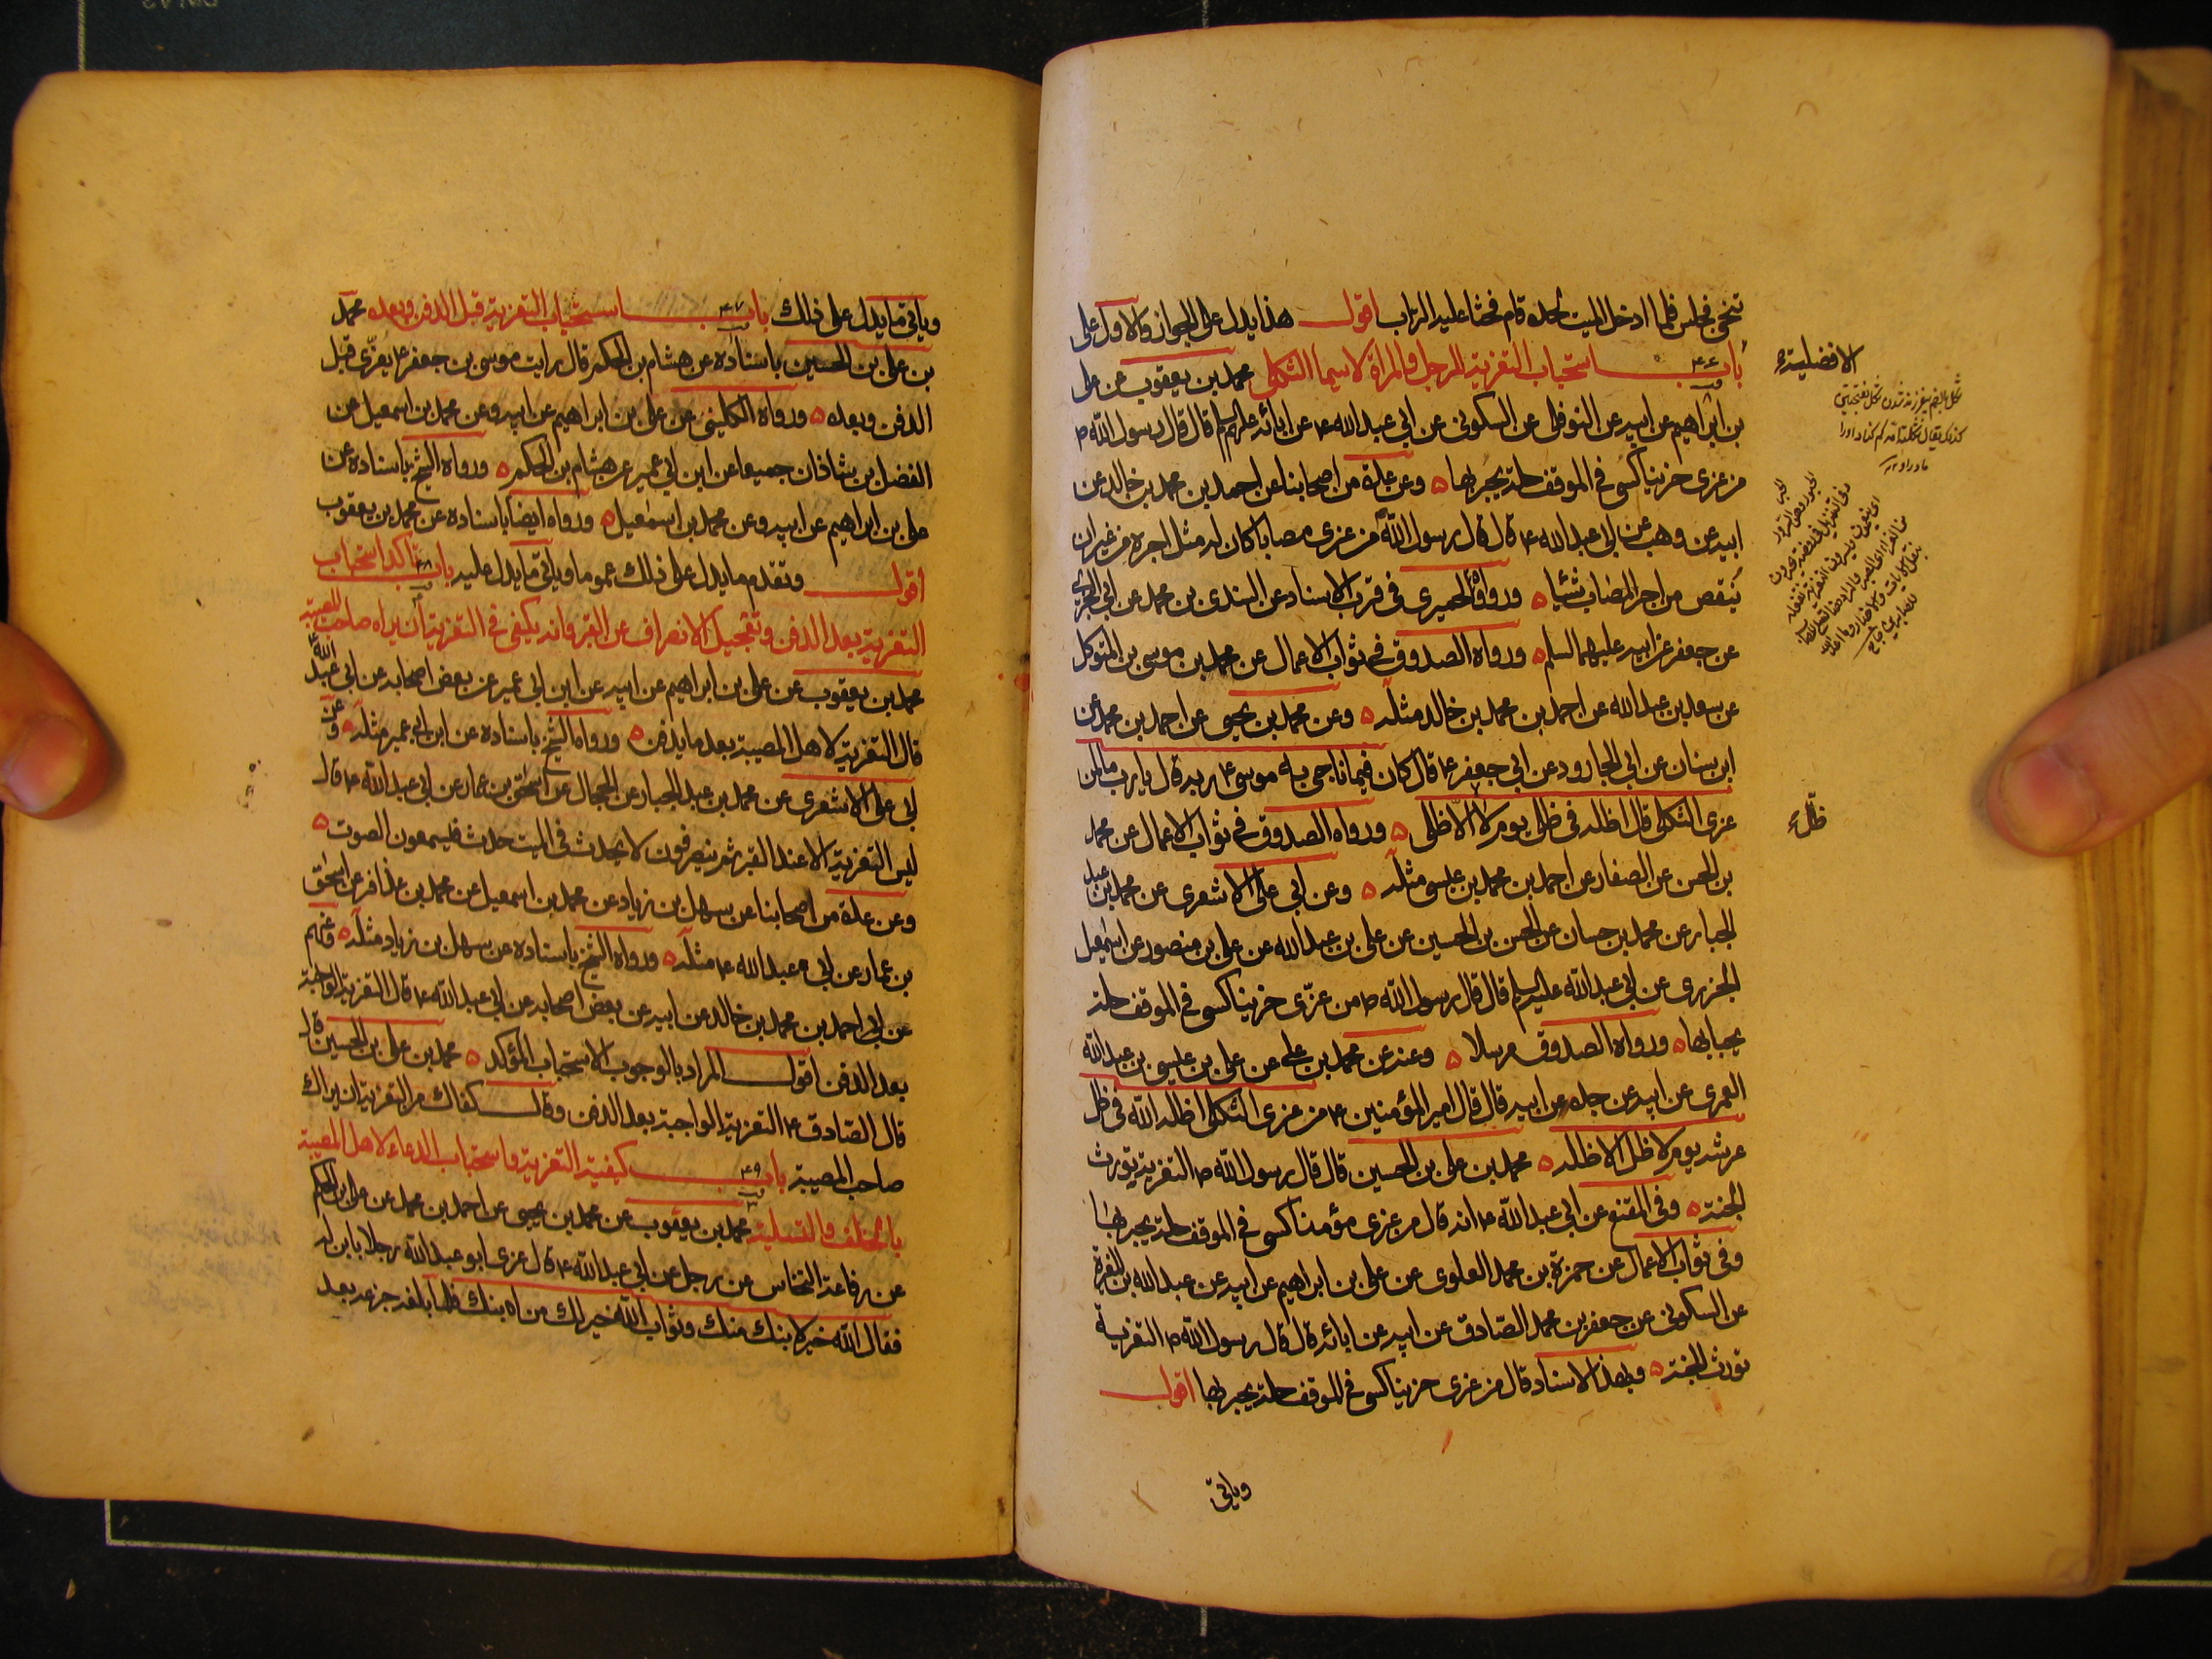 تنحى فجلس فلما ادخل الميت لحده قام فحثا عليه التراب اقول هذا يدل على الجواز والاول على
الافضلية
باب ٤٦ استحباب التعزية للرجل والمراة لاسيما الثكلى محمد بن يعقوب عن على
بن ابراهيم عن ابيه عن النوفلى عن السكونى عن ابي عبد الله ع عن ابائه عليهم السلم قال قال رسول الله ص
من عزى حزينا كسى في الموقف حلة يحبر بها ٥ وعن عدة من اصحابنا عن احمد بن محمد بن خالد عن
ابيه عن وهب عن ابى عبد الله ع قال قال رسول الله ص من عزى مصابا كان له مثل اجره من غير ان
ينقص من اجر المصاب شئيا ٥ ورواه الحميرى في قرب الاسناد عن السندى بن محمد عن ابي البخترى
عن جعفر عن ابيه عليهما السلم ٥ ورواه الصدوق في ثواب الاعمال عن محمد بن موسى بن المتوكل
عن سعد بن عبد الله عن احمد بن محمد بن خالد مثله ٥ وعن محمد بن يحيى عن احمد بن محمد عن
ابن سنان عن ابي الجارود عن ابي جعفر ع قال كان فيما ناجى به موسى ع ربه قال يا رب ما لمن
عزى الثكلى قال اظله في ظلى يوم لا ظل الا ظلى ٥ ورواه الصدوق في ثواب الاعمال عن محمد
ظل
بن الحسن عن الصفار عن احمد بن محمد بن عيسى مثله ٥ وعن ابي على الاشعرى عن محمد بن عبد
الجبار عن محمد بن حسان عن الحسن بن الحسين عن على بن عبد الله عن على بن منصور عن اسمعيل
الجزرى عن ابي عبد الله عليه السلم قال قال رسول الله ص من عزّى حزينا كسى في الموقف حلة
يحبا بها ٥ ورواه الصدوق مرسلا ٥ وعنه عن محمد بن على عن على بن عيسى بن عبد الله
العمرى عن ابيه عن جده عن ابيه قال قال امير المؤمنين ع من عزى الثكلى اظله الله في ظل
عرشه يوم لا ظل الا ظله ٥ محمد بن على بن الحسين قال قال رسول الله ص التعزية تورث
الجنة ٥ وفي المقنع عن ابي عبد الله ع انه قال من عزى مؤمنا كسى في الموقف حلة يحبر بها
وفي ثواب الاعمال عن حمزة بن محمد العلوى عن على بن ابراهيم عن ابيه عن عبد الله بن المغيرة
عن السكونى عن جعفر بن محمد الصّادق عن ابيه عن ابائه قال قال رسول الله ص التعزية
تورث الجنة ٥ وبهذا الاسناد قال من عزى حزينا كسى في الموقف حلة يحبر بها اقول
وياتى
وياتى ما يدل على ذلك باب ٤٧ استحباب التعزية قبل الدفن وبعده محمد
بن على بن الحسين باسناده عن هشام بن الحكم قال رايت موسى بن جعفر ع يعزّى قبل
الدفن وبعده ٥ ورواه الكلينى عن على بن ابراهيم عن ابيه وعن محمد بن اسمعيل عن
الفضل بن شاذان جميعا عن ابن ابي عمير عن هشام بن الحكم ٥ ورواه الشيخ باسناده عن
على بن ابراهيم عن ابيه وعن محمد بن اسمعيل ٥ ورواه ايضا باسناده عن محمد بن يعقوب
اقول وتقدم ما يدل على ذلك عموما وياتى ما يدل عليه باب ٤٨ تاكد استحباب
التعزية بعد الدفن وتعجيل الانصراف عن القبر وانه يكفى في التعزية ان يراه صاحب المصيبة
محمد بن يعقوب عن على بن ابراهيم عن ابيه عن ابن ابي عمير عن بعض اصحابه عن ابي عبد الله ع
قال التعزية لاهل المصيبة بعد ما يدفن ٥ ورواه الشيخ باسناده عن ابن ابي عمير مثله ٥ وعن
ابي على الاشعرى عن محمد بن عبد الجبار عن الحجال عن اسحق بن عمار عن ابي عبد الله ع قال
ليس التعزية الا عند القبر ثم ينصرفون لا يحدث في الميت حدث فيسمعون الصوت ٥
وعن عدة من اصحابنا عن سهل بن زياد عن محمد بن اسمعيل عن محمد بن عذافر عن اسحق
بن عمار عن ابي عبد الله ع مثله ٥ ورواه الشيخ باسناده عن سهل بن زياد مثله ٥ وعنهم
عن احمد بن محمد بن خالد عن ابيه عن بعض اصحابه عن ابي عبد الله ع قال التعزية الواجبة
بعد الدفن اقول المراد بالوجوب الاستحباب المؤكد ٥ محمد بن على بن الحسين قال
قال الصّادق ع التعزية الواجبة بعد الدفن وقال كفاك من التعزية ان يراك
صاحب المصيبة باب ٤٩ كيفية التعزية واستحباب الدعاء لاهل المصيبة
بالخلف والتسلية محمد بن يعقوب عن محمد بن يحيى عن احمد بن محمد عن على بن الحكم
عن رفاعة النخاس عن رجل عن ابي عبد الله ع قال عزى ابو عبد الله رجلا بابن له
فقال الله خير لابنك منك وثواب الله خير لك من ابنك فلما بلغه جزعه بعد